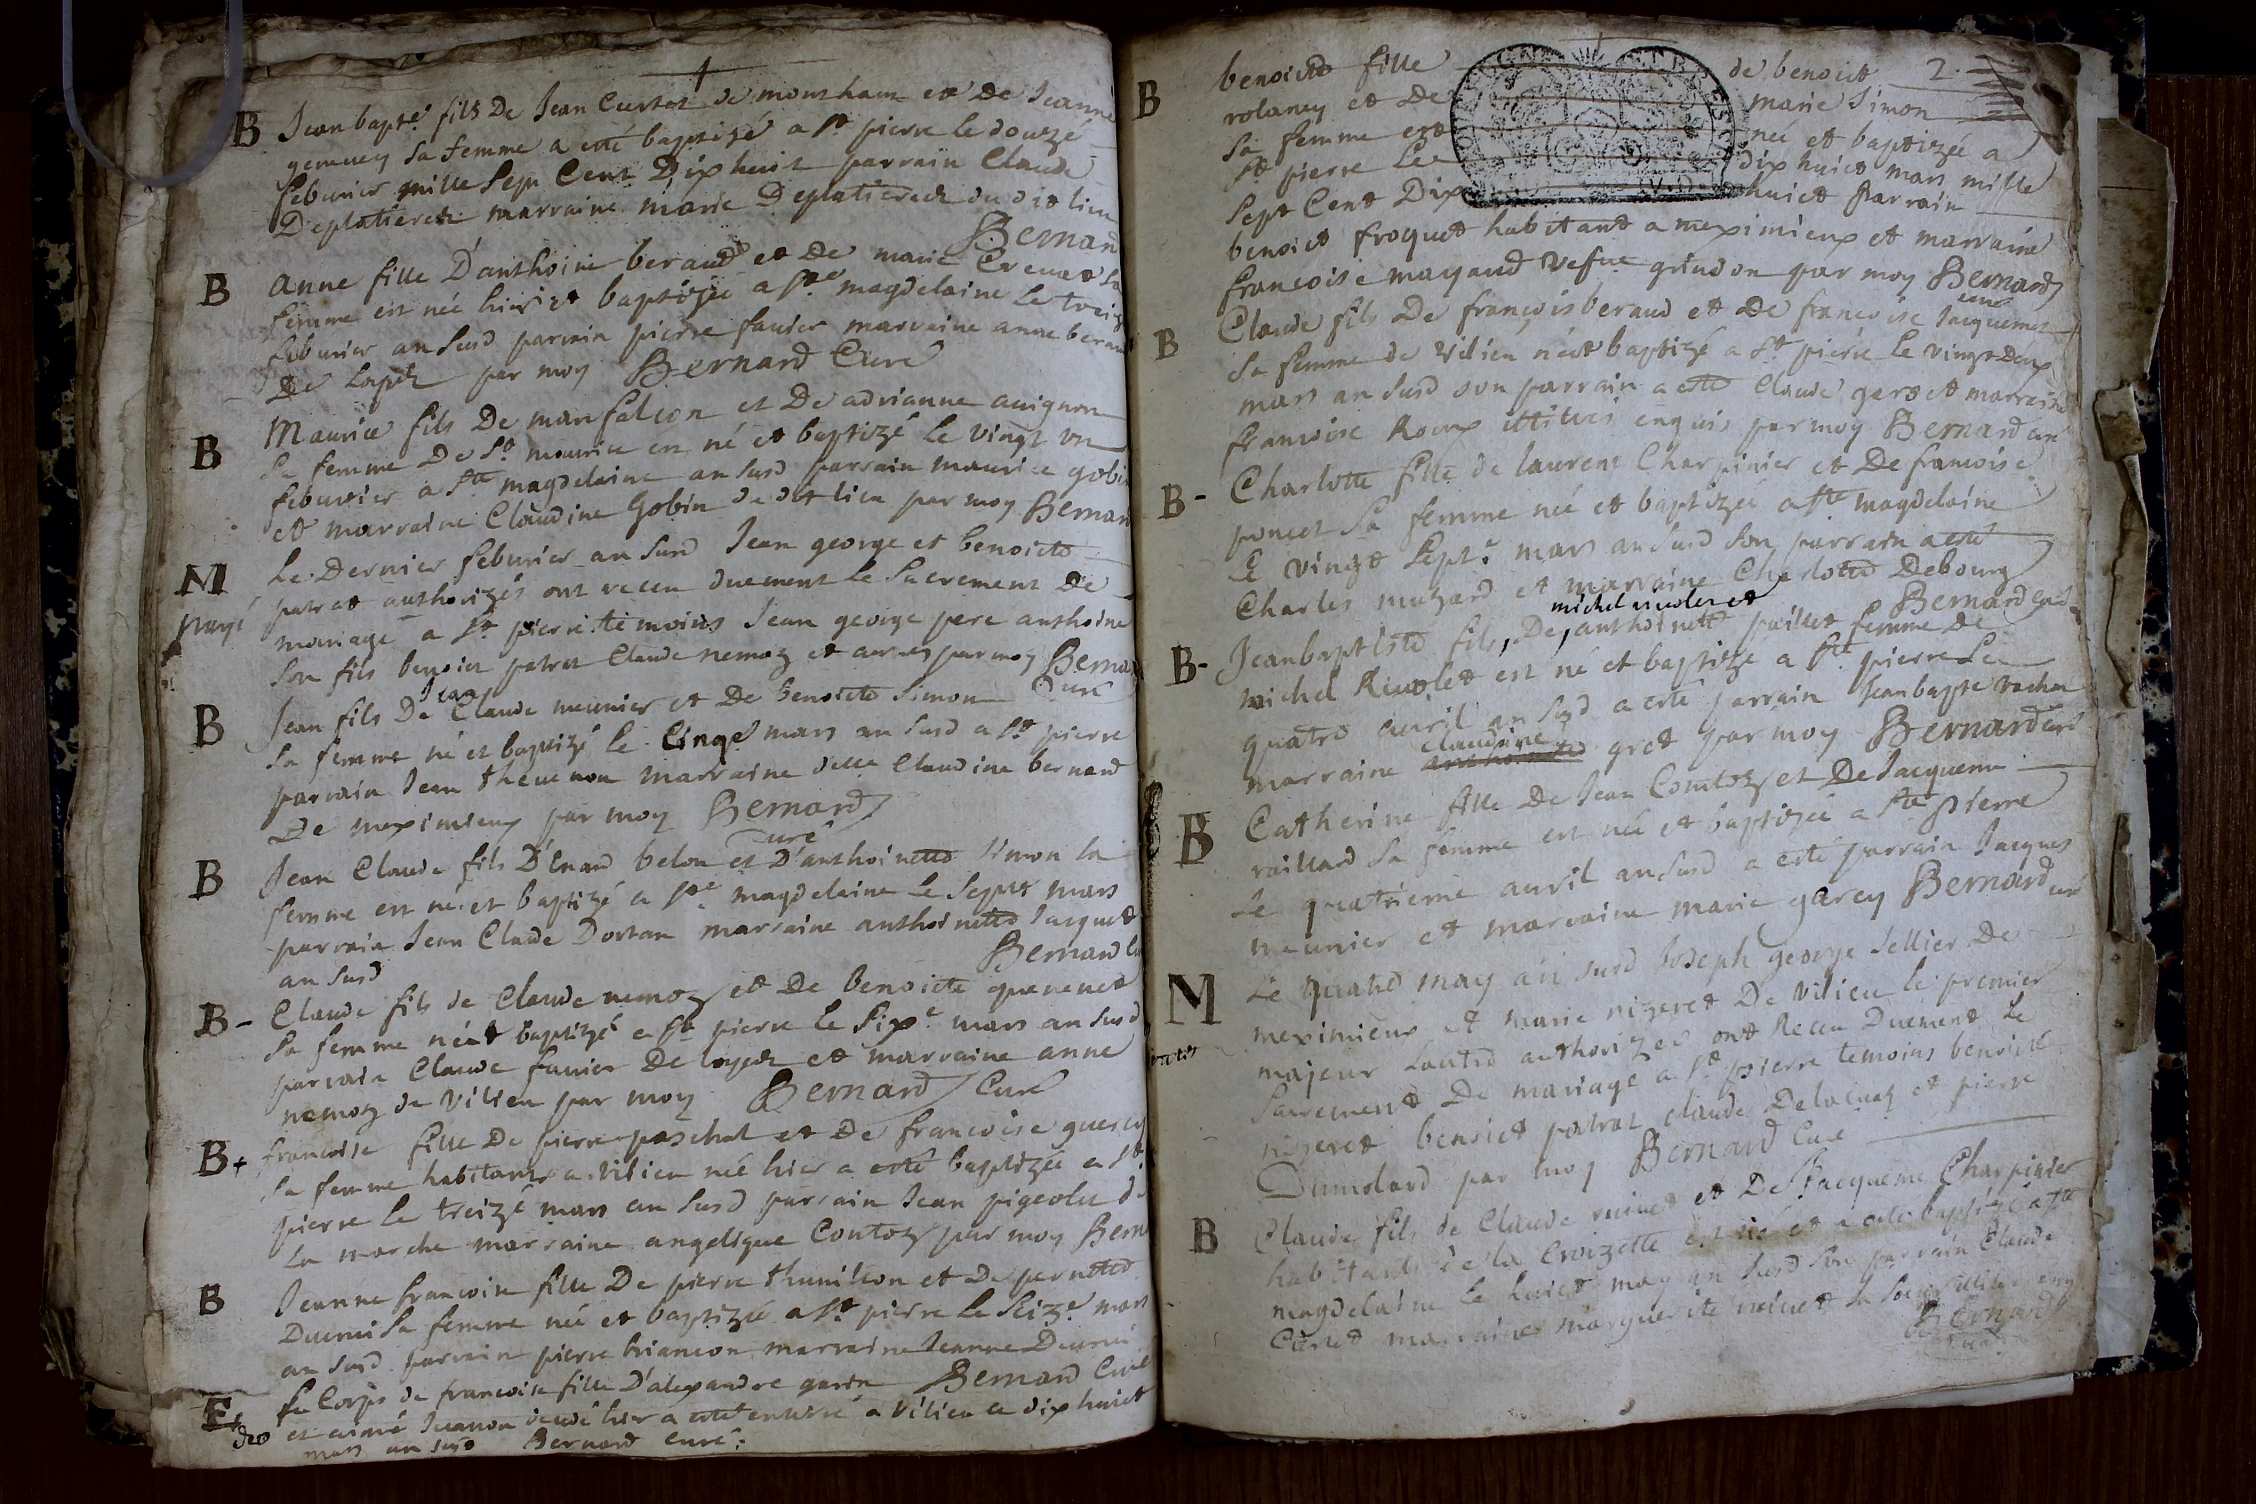 B Jean bapte fils De Jean Curtet de monthaux et De Jeanne
sa femme a esté baptizé a St pierre le douze
feburier mille Sept Cent Dix huit parrain Claude
Deplatierech marraine marie Deplatierech du dit lieu
Bernard
B Anne fille D'anthoine beraud et de marie Crenat Sa
femme est née hier et baptizée a Ste magdelaine le treiz
feburier an Susd parrain pierre fauier marraine anne beraud
De par moy Bernard Curé
B Maurice fils De falcon et De adrianne auignon
Sa femme De St maurice est né et baptizé Le vingt un
feburier a Ste magdelaine an Susd parrain maurice gobin
et marraine Claudine Gobin de dit lieu par moy Bernard
M Le Dernier feburier an Susd Jean george et benoicte
payé patrat authorizés ont receu duement Le Sacrement De
mariage a St pierre temoins Jean george pere anthoine
Son fils benoict patrat Claude nemoz et autres par moy Bernard
Curé
Jean
B Jean fils De Claude meunier et De benoicte Simon
Sa femme né et baptizé le Cinqe mars an Susd a St pierre
parrain Jean theuenon marraine delle Claudine bernard
De meximieux par moy Bernard
Curé
B Jean Claude fils D'Enard belon et D'anthoinette Simon Sa
femme est né et baptizé a Ste magdelaine Le Sept mars
parrain Jean Claude Dortan marraine anthoinette Jacquet
an Susd Bernard Cu
B - Claude fils de Claude nemoz et De benoicte quenenet
Sa femme né et baptizé a St pierre le Sixe mars an Susd
parrain Claude fauier De loyetz et marraine anne
nemoz de Vilieu par moy Bernard Curé
B + francoise fille De pierre paschal et De francoise
Sa femme habitants a Vilieu née hier a esté baptizée a St
pierre le treizé mars an Susd parrain Jean pigeolet de
La marche marraine angelique Contoz par moy Bern
B Jeanne francoise fille De pierre thunilion et De pernette
Duerni Sa femme née et baptizée a St pierre Le Seize mars
an Susd parrain pierre briancon marraine Jeanne Duerni
Bernard Curé
E Le Corps de francoise fille D'alexandre garin
et Juenon hier a esté enterré a Vilieu ce dix huict
mars an Susd Bernard curé
2.
B benoicte fille de benoict
rolancy et De marie Simon
Sa femme est née et baptizée a
St pierre Le dix huict mars mille
Sept Cent Dix huict Parrain
benoict froquet habitant a meximieux et marraine
francoise mayaud Vefue grindon par moy Bernard
curé
B Claude fils De françois beraud et De francoise Jacquemet
Sa femme de Vilieu né et baptizé a St pierre le vingt Deux
mars an Susd son parrain a esté Claude gers et marraine
francoise Roux illiteres enquis par moy Bernard curé
B - Charlotte fille de laurent Charpinier et De francoise
poncet Sa femme née et baptizée a Ste magdelaine
Le vingt Septe mars an Susd Son parrain a esté
Charles muzard et marraine Charlotte Debourg
Bernard curé
michel riuolet et
B - Jean baptiste fils, De, anthoinette paillet femme De
michel Riuolet est né et baptizé a St pierre Le
quatre auril an Susd a esté parrain Jean bapte
claudine
marraine anthoinette gret par moy Bernard curé
B Catherine fille De Jean Contoz et De Jacquema
raillard Sa femme est née et baptizée a St pierre
Le quatrieme auril an Susd a esté parrain Jacques
meunier et marraine marie garcy Bernard curé
M Le quatre may an Susd Joseph george Sellier De
meximieux et marie nizeret De Vilieu le premier
majeur Lautre authorizée ont Receu Duement Le
Sacrement De mariage a St pierre temoins benoict
nizeret benoict patrat claude Delacua et pierre
Dumolard par moy Bernard Curé
B Claude fils de Claude et De Jacqueme Charpinier
habitants de la Croizette est né et a esté baptizé a Ste
magdelaine le huict may an Susd Son parrain Claude
marraine marguerite Sa Soeur
Bernard
curé